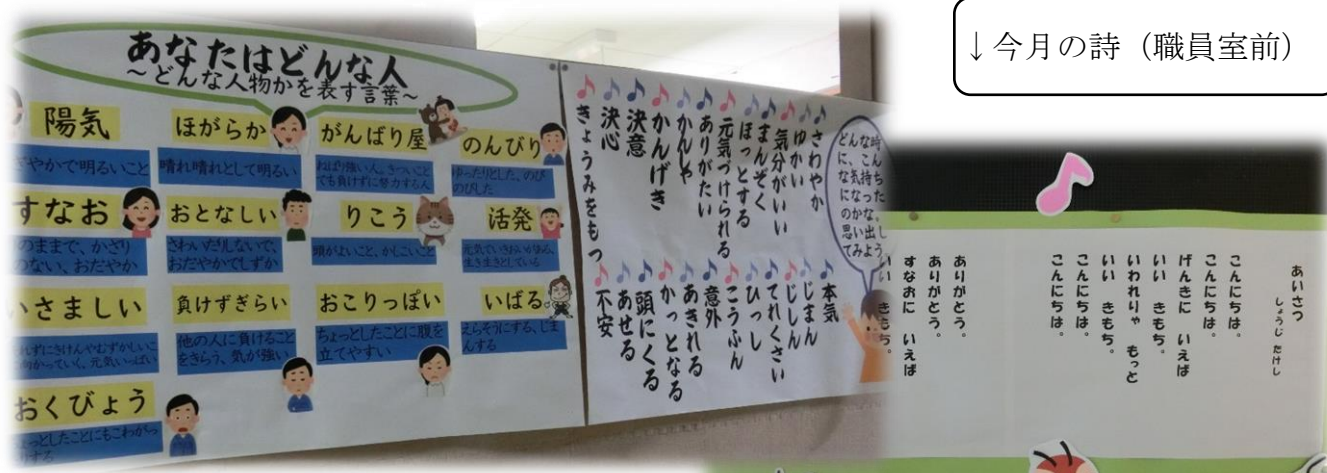 ↓今月の詩（職員室前）
あなたはどんな人
～どんな人物かを表す言葉～
陽気
やかで明るいこと
ほがらか
晴れ晴れとして明るい
がんばり屋
ねばり強い人。きついこと
でも負けずに努力する人
のんびり
ゆったりとした、のび
のびした
すなお
のままで、かざり
のない、おだやか
おとなしい
さわいだりしないで、
おだやかでしずか
りこう
頭がよいこと、かしこいこと
活発
元気でいきおいがある、
生き生きとしている
いさましい
れずにきけんやむずかしいこ
向かっていく、元気いっぱい
負けずぎらい
他の人に負けること
をきらう、気が強い
おこりっぽい
ちょっとしたことに腹を
立てやすい
いばる
えらそうにする、じま
んする
おくびょう
ょっとしたことにもこわがっ
りする
どんな時
どんな気持ち
さわやか
ゆかい
気分がいい
まんぞく
ほっとする
元気づけられる
ありがたい
かんしゃ
かんげき
決意
決心
きょうみをもつ
本気
じまん
じしん
てれくさい
ひっし
こうふん
意外
あきれる
かっとなる
頭にくる
あせる
不安
あいさつ
しょうじ たけし
こんにちは。
こんにちは。
げんきに いえば
いい きもち。
いわれりゃ もっと
いい きもち。
こんにちは。
こんにちは。
ありがとう。
ありがとう。
すなおに いえば
いい きもち。